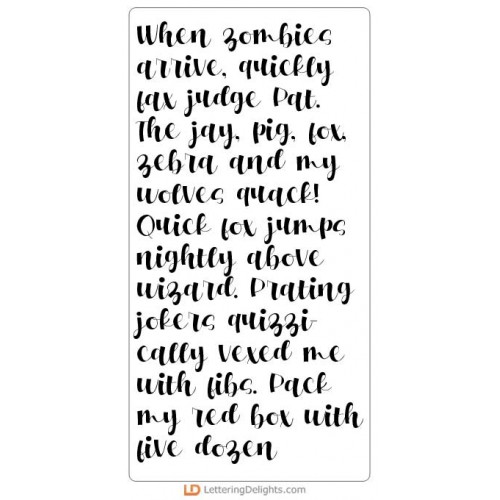 When zombies
arrive, quickly
fax judge Pat.
The jay, pig, fox,
zebra and my
wolves quack!
Quick fox jumps
nightly above
wizard. Prating
jokers quizzi-
cally vexed me
with fibs. Pack
my red box with
five dozen
LD LetteringDelights.com